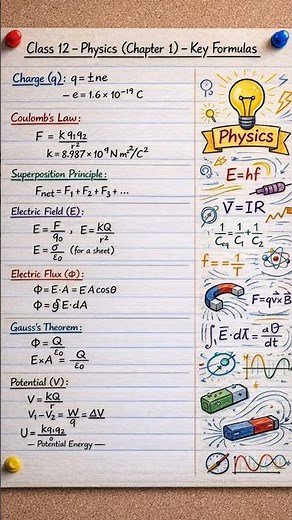 Class 12 – Physics (Chapter 1) – Key Formulas
Charge (q): q = ±ne
– e = 1.6 × 10⁻¹⁹ C
Coulomb's Law:
F = K q₁q₂ / r²
k = 8.987 × 10⁹ N m²/C²
Superposition Principle:
Fnet = F₁ + F₂ + F₃ + ...
Electric Field (E):
E = F / q₀ , E = KQ / r²
E = σ / ε₀ (for a sheet)
Electric Flux (Φ):
Φ = E · A = E A cosθ
Φ = ∮ E · dA
Gauss's Theorem:
Φ = Q / ε₀
E×A = Q / ε₀
Potential (V):
V = KQ / r
V₁ – V₂ = W / q = ΔV
U = kq₁q₂ / o
— Potential Energy —
Physics
E = hf
V = IR
1/Ceq = 1/C₁ + 1/C₂
f = = 1/T
F = qv × B